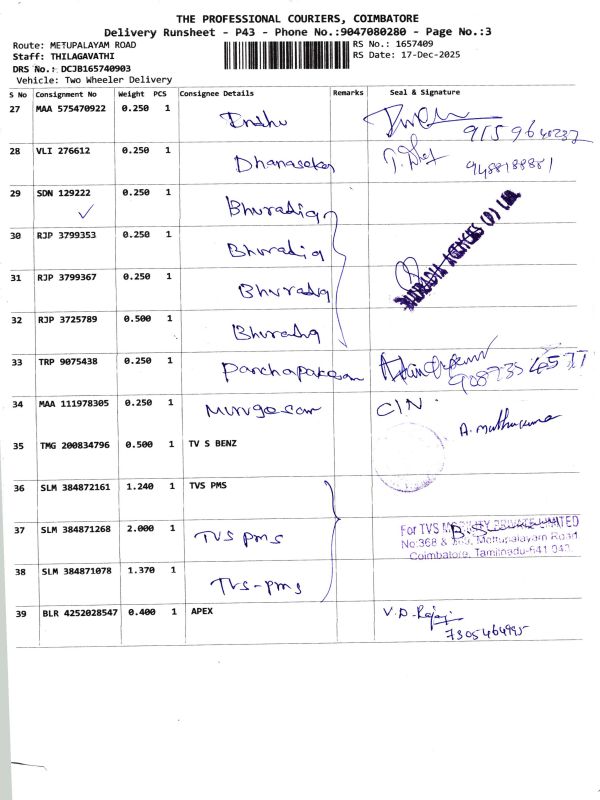 THE PROFESSIONAL COURIERS, COIMBATORE
Delivery Runsheet - P43 - Phone No.:9047080280 - Page No.:3
Route: METUPALAYAM ROAD
RS No.: 1657409
Staff: THILAGAVATHI
RS Date: 17-Dec-2025
DRS No.: DCJB165740903
Vehicle: Two Wheeler Delivery
S No Consignment No Weight PCS Consignee Details Remarks Seal & Signature
27 MAA 575470922 0.250 1 Indhu
28 VLI 276612 0.250 1 Dhanasekar 9488188881
29 SDN 129222 0.250 1 Bhuradiq
30 RJP 3799353 0.250 1 Bhuradiq
31 RJP 3799367 0.250 1 Bhuradiq
AGENCIES (P) Ltd.
32 RJP 3725789 0.500 1 Bhuradiq
33 TRP 9075438 0.250 1 Panchapakesan
34 MAA 111978305 0.250 1 Murugesan CIN.
A. muthukumar
35 TMG 200834796 0.500 1 TV S BENZ
36 SLM 384872161 1.240 1 TVS PMS
37 SLM 384871268 2.000 1 TVS pms
For TVS MOBILITY PRIVATE LIMITED
No:368 & Mettupalayam Road
Coimbatore, Tamilnadu-641 043.
38 SLM 384871078 1.370 1 TVS-pms
39 BLR 4252028547 0.400 1 APEX V.D. Rajaji
7305464995